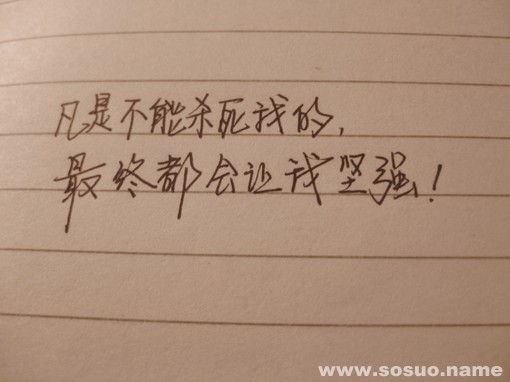 凡是不能杀死我的,
最终都会让我坚强!
www.sosuo.name